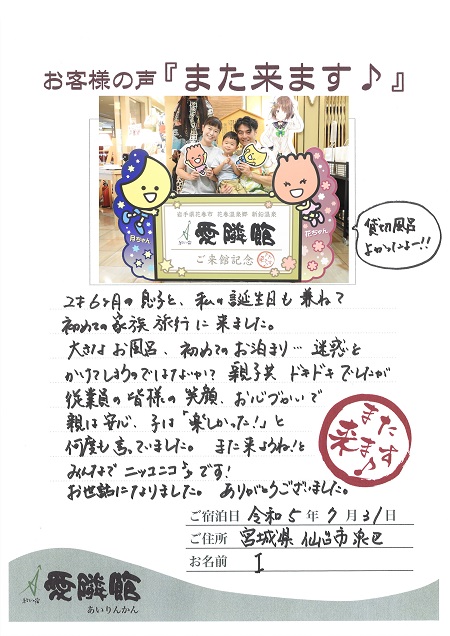 お客様の声『また来ます♪』
岩手県花巻市 花巻温泉郷 新鉛温泉
愛隣館
ご来館記念
月ちゃん
花ちゃん
貸切風呂
よかったよー!!
2才6ヶ月の息子と、私の誕生日も兼ねて
初めての家族旅行に来ました。
大きなお風呂、初めてのお泊まり… 迷惑を
かけてしまうのではないか? 親子共 ドキドキでしたが
従業員の皆様の笑顔、お心づかいで
親は安心、子は「楽しかった!」と
何度も言っていました。また来ようね!と
みんなで ニッコニコ♪です!
お世話になりました。ありがとうございました。
また
来ます♪
ご宿泊日 令和5年7月31日
ご住所 宮城県 仙台市泉区
お名前 I
愛隣館
あいりんかん